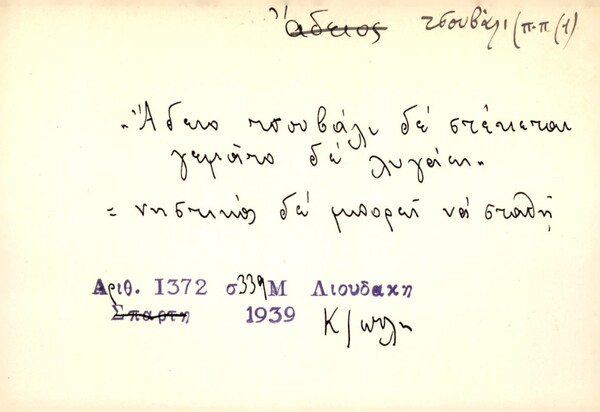 Ἄδειος τσουβάλι (π-π (1)
"Ἄδειο τσουβάλι δέ στέκεται
γεμᾶτο δέ λυγάει"
= νηστικός δέ μπορεῖ νά σταθῇ
Αριθ. 1372 σ339 Μ Λιουδακη
Σπαρτη 1939 Κ/πολη